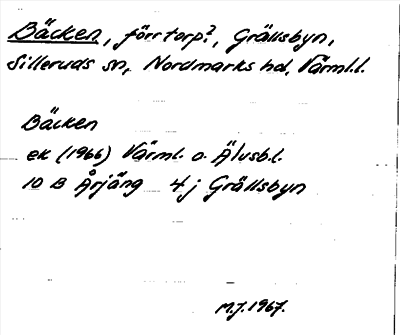 Bäcken, förr torp?, Grällsbyn,
Silleruds sn, Nordmarks hd, Värml.l.
Bäcken
ek (1966) Värml. o. Älvsb.l.
10 B Årjäng 4 j Grällsbyn
M.J. 1967.